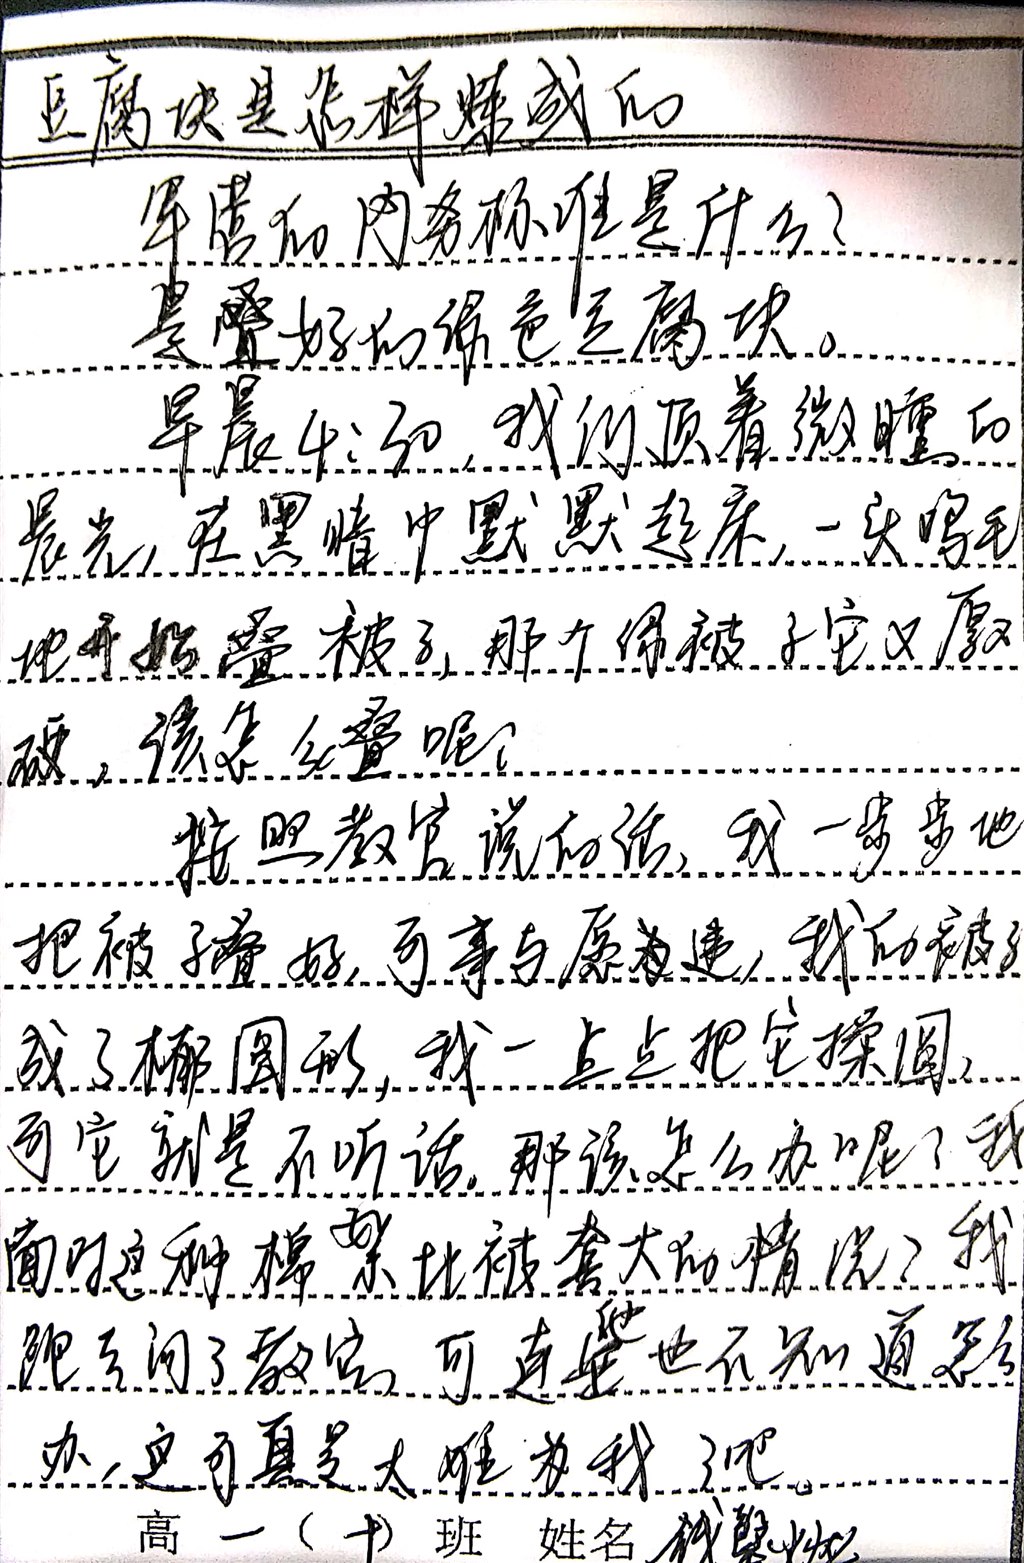 豆腐块是怎样炼成的
军营的内务标准是什么？
是叠好的绿色豆腐块。
早晨4:30，我们顶着微曛的
晨光，在黑暗中默默起床，一头鸣毛
地开始叠被子，那个绿被子它又厚又
硬，该怎么叠呢？
按照教官说的话，我一步步地
把被子叠好，可事与愿为违，我的被子
成了椭圆形，我一点点把它揉圆，
可它就是不听话。那该怎么办呢？我
面对这种棉絮比被套大的情况？我
跑去问了教官，可连他也不知道怎么
办，这可真是太难为我了吧。
高一（十）班 姓名 钱